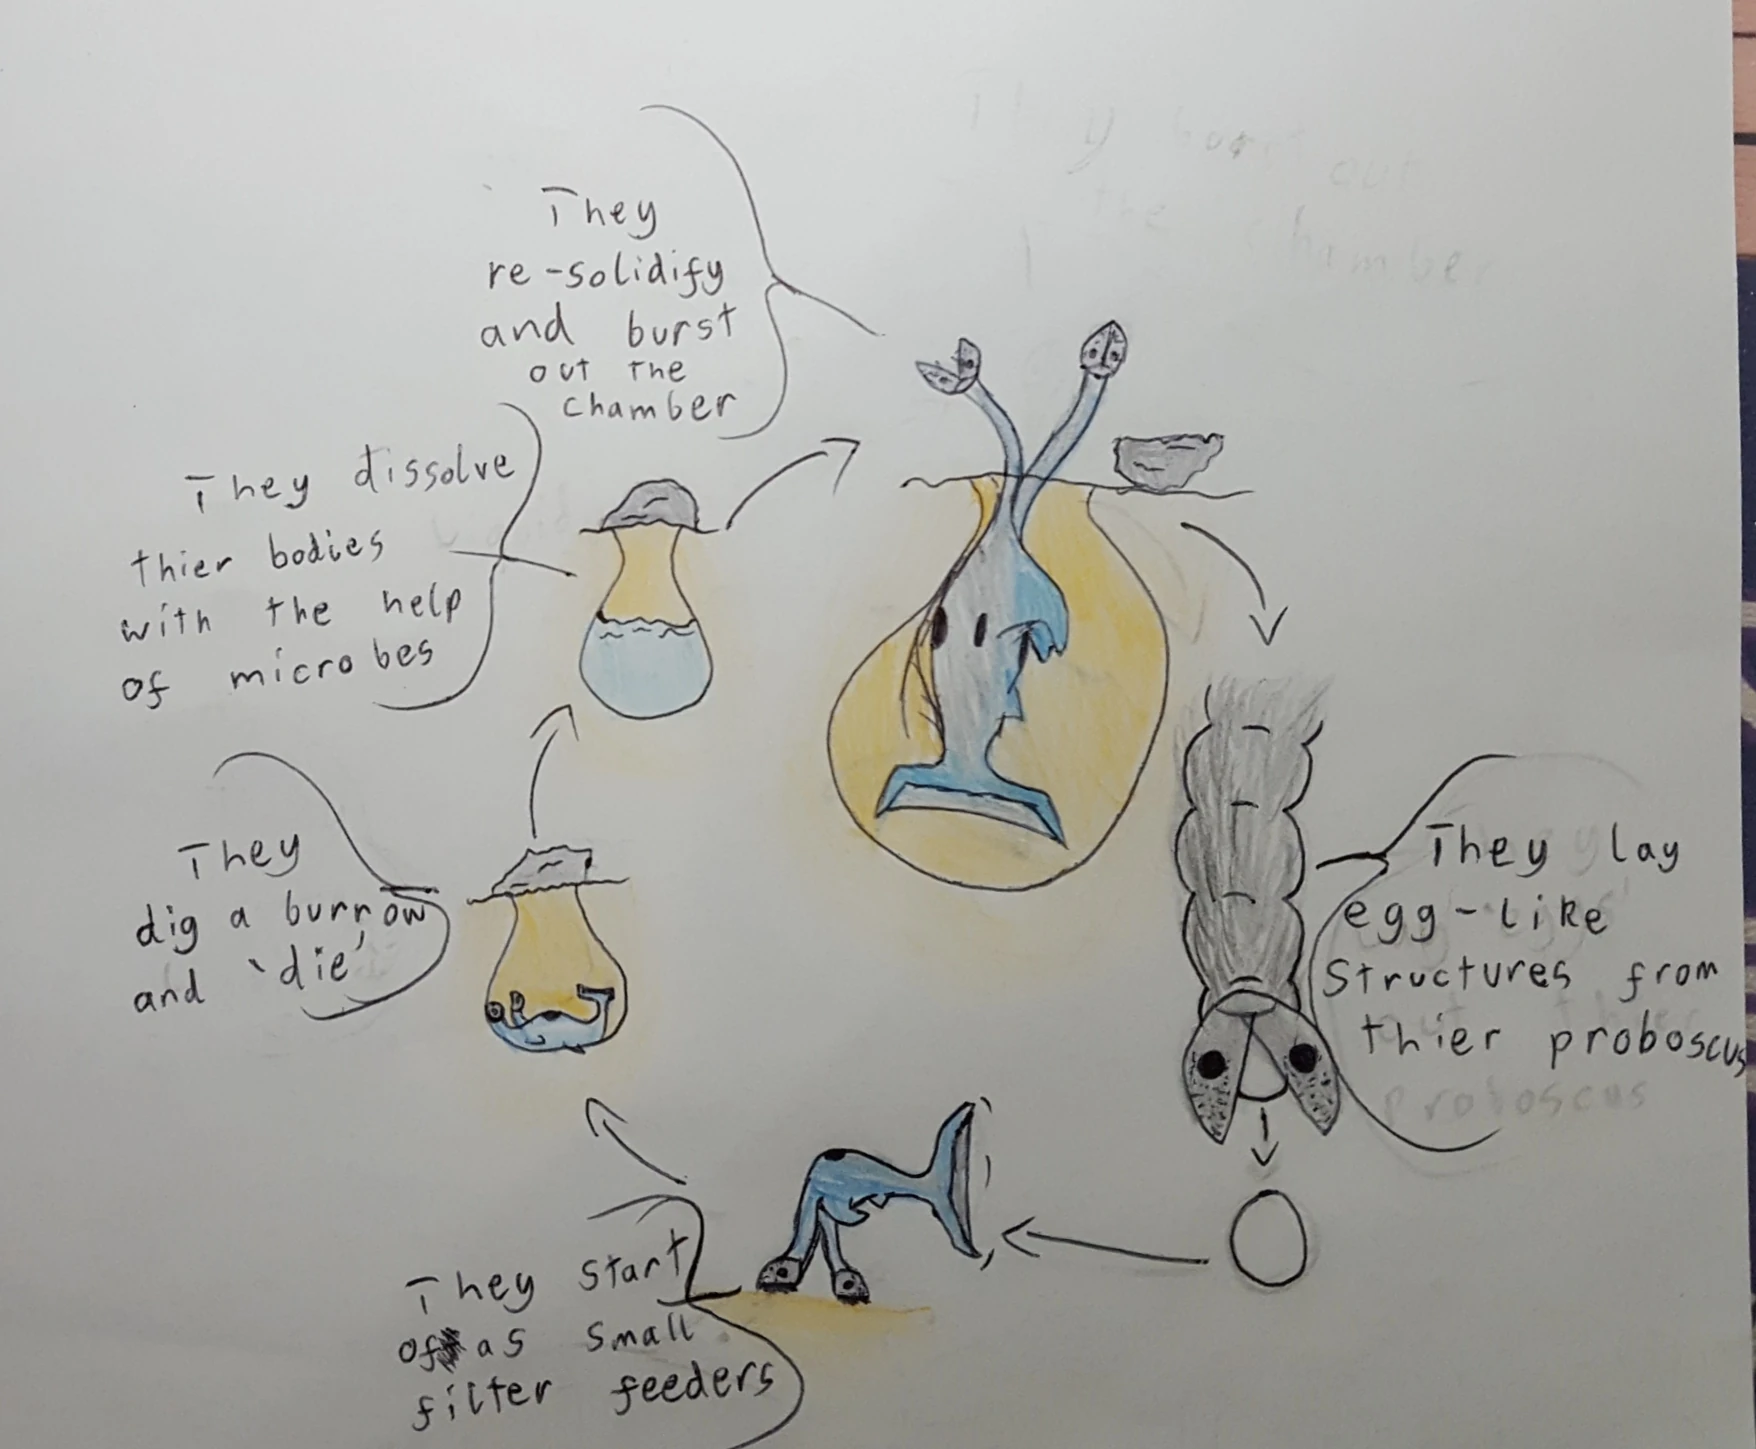 They
re-solidify
and burst
out the
chamber
They dissolve
thier bodies
with the help
of microbes
They
dig a burrow
and 'die'
They start
of as small
filter feeders
They lay
egg-like
structures from
thier proboscus
They burst out
the chamber
proboscus